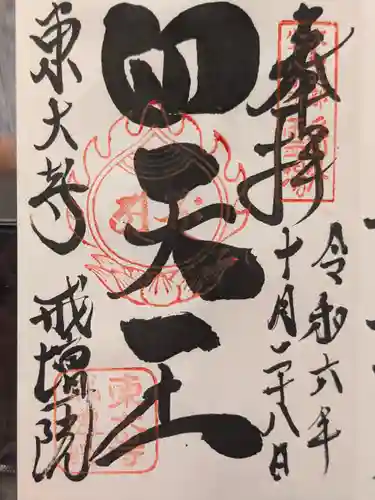 奉拝
令和六年
十月二十八日
四天王
東大寺
戒壇院